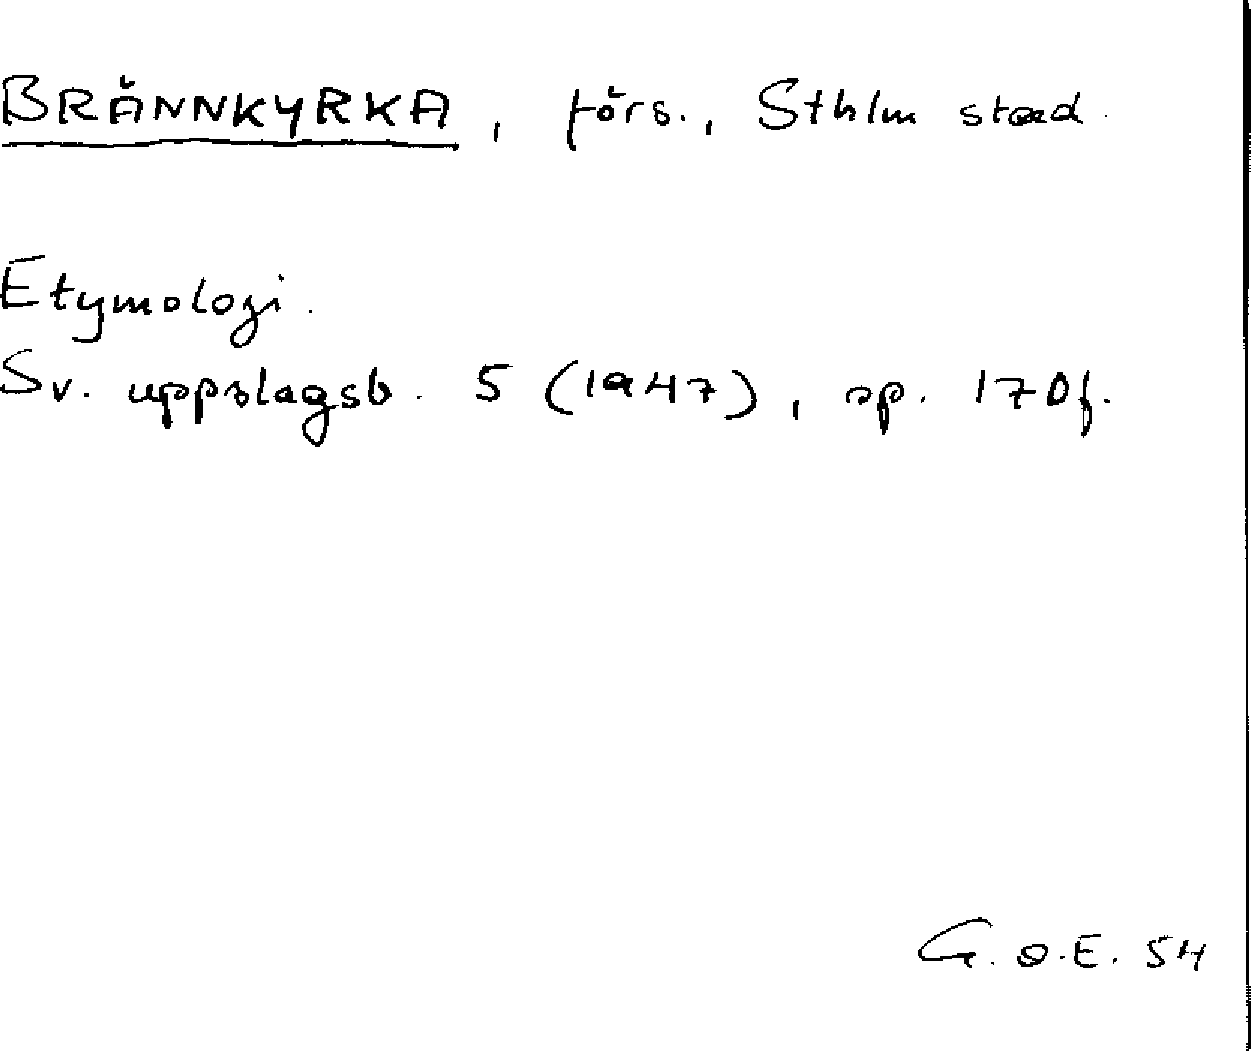 BRÄNNKYRKA, förs., Sthlm stad.
Etymologi.
Sv. uppslagsb. 5 (1947), sp. 170f.
G.O.E. 54